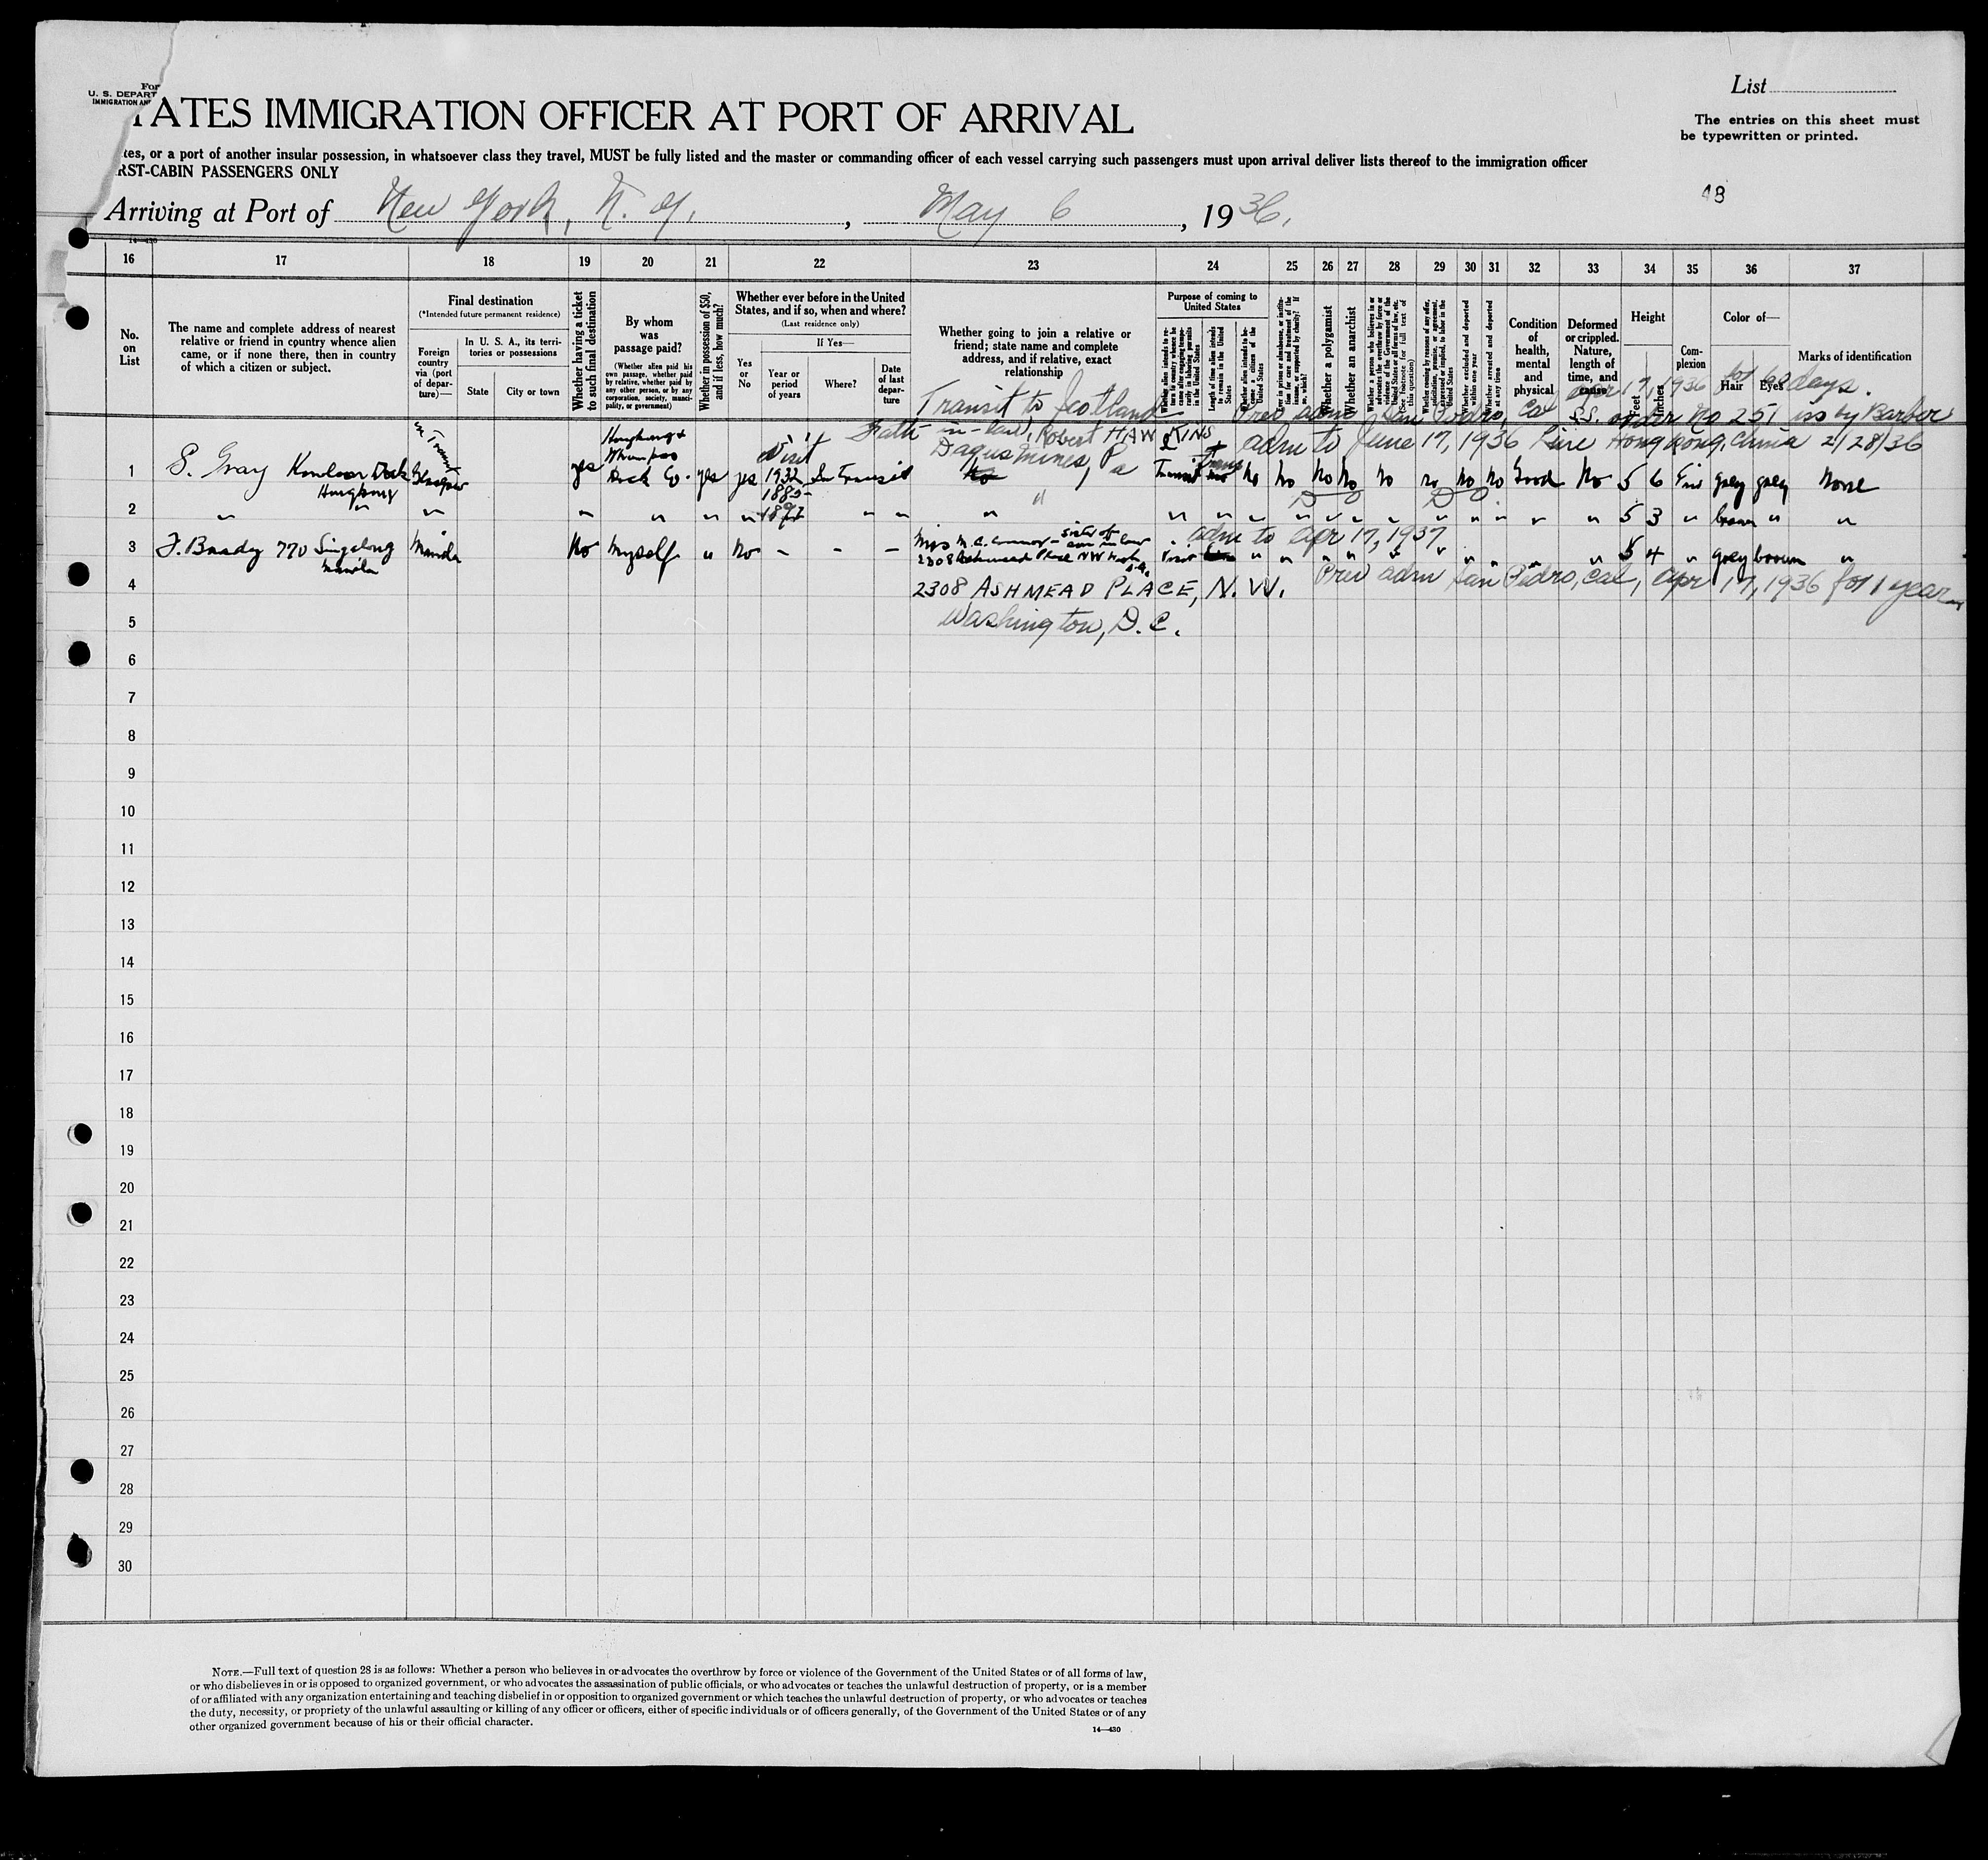 For
U. S. DEPART
IMMIGRATION AN
TATES IMMIGRATION OFFICER AT PORT OF ARRIVAL
List
The entries on this sheet must
be typewritten or printed.
tes, or a port of another insular possession, in whatsoever class they travel, MUST be fully listed and the master or commanding officer of each vessel carrying such passengers must upon arrival deliver lists thereof to the immigration officer
RST-CABIN PASSENGERS ONLY
48
Arriving at Port of New York, N. Y., May 6, 1936.
14—430
16 17 18 19 20 21 22 23 24 25 26 27 28 29 30 31 32 33 34 35 36 37
No. on List
The name and complete address of nearest relative or friend in country whence alien came, or if none there, then in country of which a citizen or subject.
Final destination
(*Intended future permanent residence)
Foreign country via (port of departure)—
In U. S. A., its territories or possessions
State
City or town
Whether having a ticket to such final destination
By whom was passage paid?
(Whether alien paid his own passage, whether paid by relative, whether paid by any other person, or by any corporation, society, municipality, or government)
Whether in possession of $50, and if less, how much?
Whether ever before in the United States, and if so, when and where?
(Last residence only)
Yes or No
If Yes—
Year or period of years
Where?
Date of last departure
Whether going to join a relative or friend; state name and complete address, and if relative, exact relationship
Purpose of coming to United States
Length of time alien intends to remain in the United States
Whether alien intends to become a citizen of the United States
Whether a polygamist
Whether an anarchist
Whether excluded and deported within one year
Whether arrested and deported at any time
Condition of health, mental and physical
Deformed or crippled. Nature, length of time, and cause
Height
Feet
Inches
Complexion
Color of—
Hair
Eyes
Marks of identification
Transit to Scotland
Prev adm San Pedro, Cal Apr 17, 1936 for 60 days.
S.S. order No 251 iss by Barber
in-law, Robert HAWKINS
adm to June 17, 1936 Line Hong Kong, China 2/28/36
Dagus Mines, Pa
1 S. Gray Kowloon Dock Hongkong
in Transit Glasgow
yes
Hongkong & Whampoa Dock Co.
yes yes
Visit 1932 1885- 1897
In Transit
No
Transit
No No No No No No No No Good No 5 6 Fair grey grey None
2 " " " " " " " " " " " 5 3 " brown " "
3 J. Brady 770 Singalong Manila
Manila
No Myself " No - - -
Mrs M. C. Connor - sister of son in law
2308 Ashmead Place NW Wash
Visit
adm to Apr 17, 1937
" 5 4 " grey brown "
4 2308 ASHMEAD PLACE, N. W.
Prev adm San Pedro, Cal, Apr 17, 1936 for 1 year
5 Washington, D. C.
6
7
8
9
10
11
12
13
14
15
16
17
18
19
20
21
22
23
24
25
26
27
28
29
30
NOTE.—Full text of question 28 is as follows: Whether a person who believes in or advocates the overthrow by force or violence of the Government of the United States or of all forms of law,
or who disbelieves in or is opposed to organized government, or who advocates the assassination of public officials, or who advocates or teaches the unlawful destruction of property, or is a member
of or affiliated with any organization entertaining and teaching disbelief in or opposition to organized government or which teaches the unlawful destruction of property, or who advocates or teaches
the duty, necessity, or propriety of the unlawful assaulting or killing of any officer or officers, either of specific individuals or of officers generally, of the Government of the United States or of any
other organized government because of his or their official character.
14—430